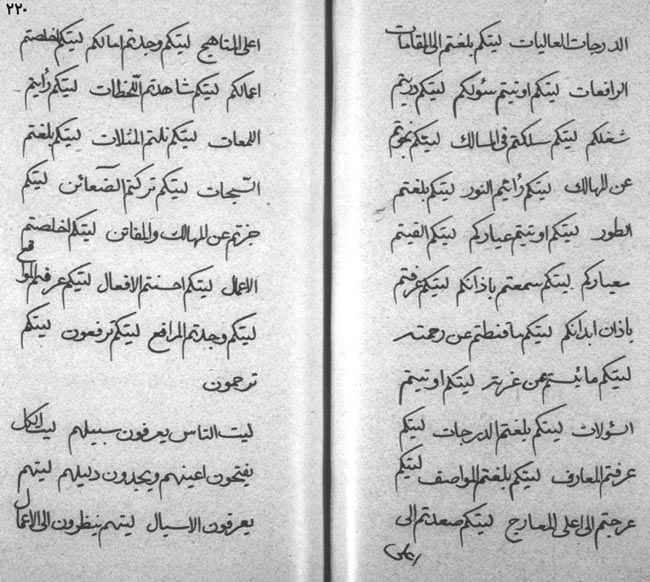 الدرجات العاليات ليتكم بلغتم الى المقامات
الرافعات ليتكم اوتيتم سئولكم ليتكم دريتم
شغلكم ليتكم سلكتم فى المسالك ليتكم نجوتم
عن المهالك ليتكم رأيتم النور ليتكم بلغتم
الطور ليتكم اوتيتم عياركم ليتكم القيتم
معياركم ليتكم سمعتم باذانكم ليتكم عرفتم
باذان ابدانكم ليتكم ما قنطتم عن رحمته
ليتكم ما يئستم عن ليتكم اوتيتم
السئولات ليتكم بلغتم الدرجات ليتكم
عرفتم المعارف ليتكم بلغتم المواصف ليتكم
عرجتم الى اعلى المعارج ليتكم صعدتم الى
اعلى
٢٢٠
اعلى المناهيج ليتكم وجدتم امالكم ليتكم اخلصتم
اعمالكم ليتكم شاهدتم اللحظات ليتكم رأيتم
اللمعات ليتكم نلتم المثلات ليتكم بلغتم
السبحات ليتكم تركتم الضغائن ليتكم
جزتم عن المهالك والمفاتن ليتكم اخلصتم
الاعمال ليتكم احسنتم الافعال ليتكم عرفتم المواقع
ليتكم وجدتم المرافع ليتكم ترفعون ليتكم
ترحمون
ليت الناس يعرفون سبيلهم ليت الكل
يفتحون اعينهم ويجدون دليلهم ليتهم
يعرفون الاسبال ليتهم ينظرون الى الاعمال